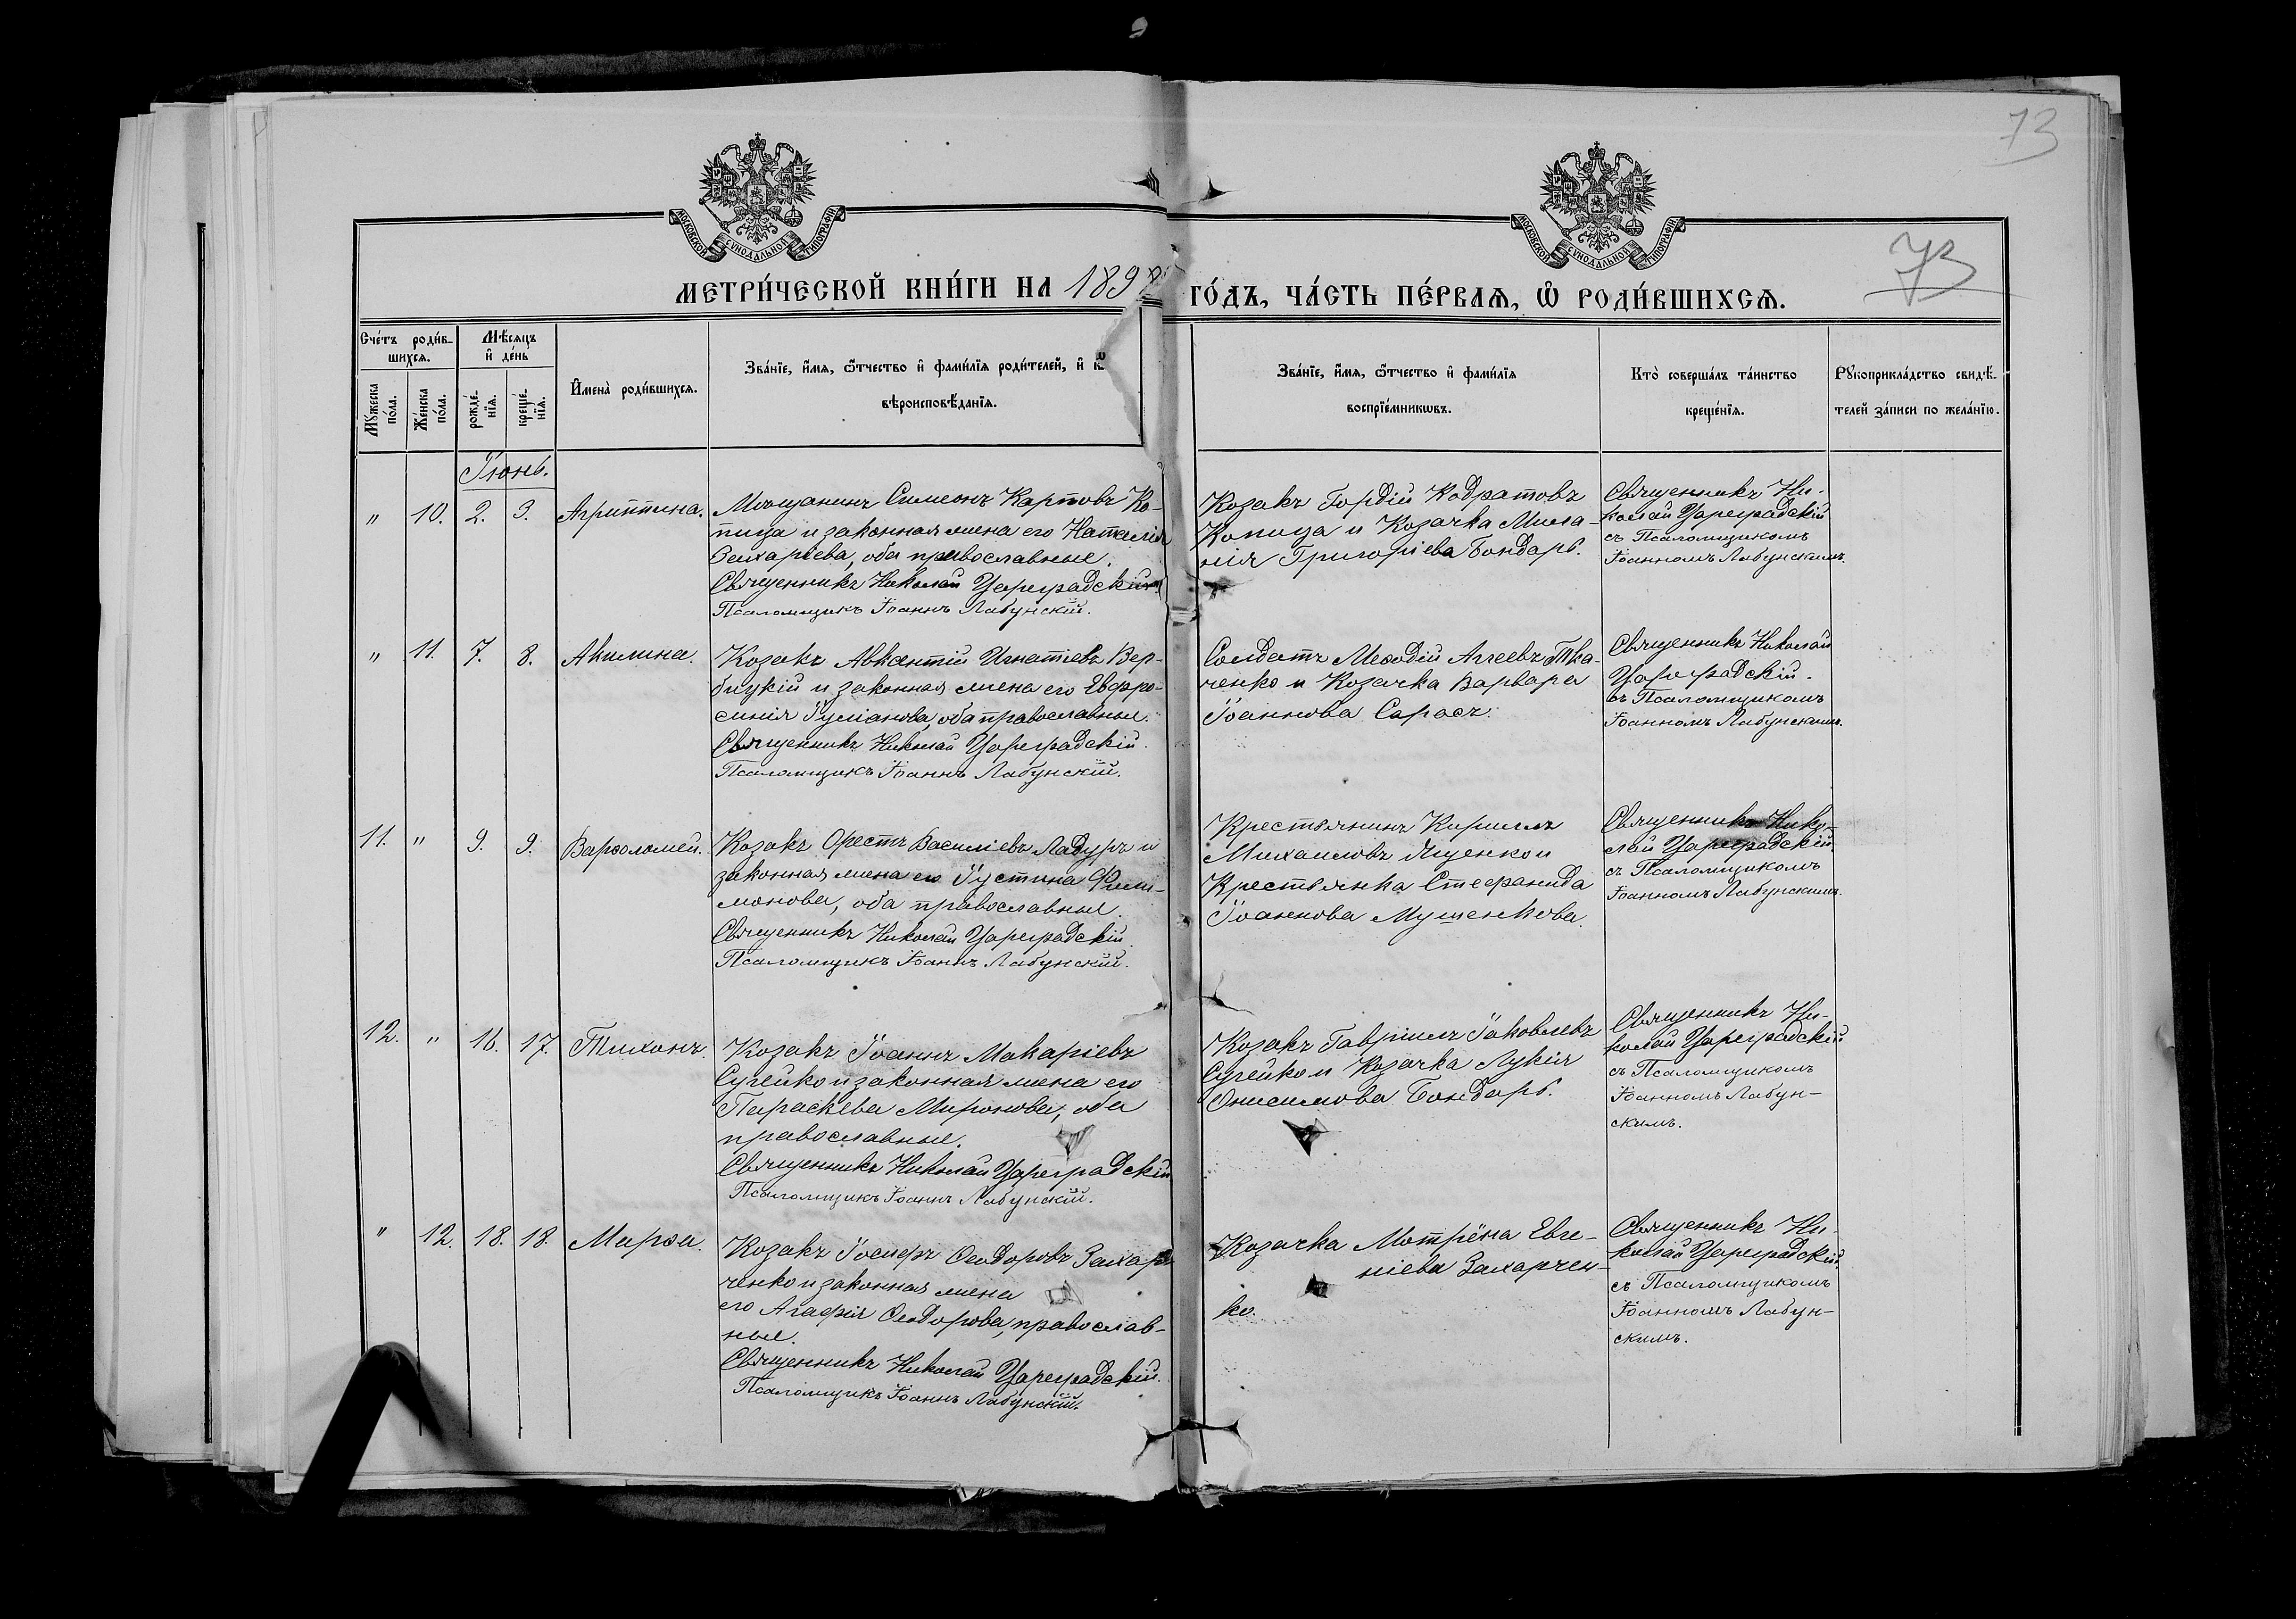 73
МОСКОВСКОЙ СѴНОДАЛЬНОЙ ТИПОГРАФІИ
МОСКОВСКОЙ СѴНОДАЛЬНОЙ ТИПОГРАФІИ
73
МЕТРИ́ЧЕСКОЙ КНИ́ГИ НА 189
ГО́ДЪ, ЧА́СТЬ ПЕ́РВАѦ, Ѡ҆ РОДИ́ВШИХСѦ.
Сче́тъ роди́в-
шихсѧ.
Мѣ́сѧцъ
и҆ де́нь
Мꙋ́жеска
по́ла.
Же́нска
по́ла.
рожде́-
нїѧ.
креще́-
нїѧ.
И҆мена̀ роди́вшихсѧ.
Зва́нїе, и҆́мѧ, ѻ҆́тчество и҆ фами́лїѧ роди́телей, и҆
вѣроисповѣ́данїѧ.
Зва́нїе, и҆́мѧ, ѻ҆́тчество и҆ фами́лїѧ
воспрїе́мникѡвъ.
Кто̀ соверша́лъ та́инство
креще́нїѧ.
Рꙋкоприкла́дство свидѣ́-
телей за́писи по жела́нїю.
Іюнь.
" 10. 2. 3. Агриппина.
Мѣщанинъ Симеонъ Карповъ Ко-
пица и законная жена его Наталія
Захаріева, оба православные.
Священникъ Николай Цареградскій
Псаломщикъ Іоаннъ Лабунскій.
Козакъ Гордій Кодратовъ
Копица и Козачка Мила-
нія Григоріева Бондарь.
Священникъ Ни-
колай Цареградскій
съ Псаломщикомъ
Іоанномъ Лабунскимъ.
" 11. 7. 8. Акилина.
Козакъ Авксентій Игнатіевъ Вер-
бицкій и законная жена его Евфро-
синія Іуліанова, оба православные.
Священникъ Николай Цареградскій.
Псаломщикъ Іоаннъ Лабунскій.
Солдатъ Меѳодій Аггеевъ Тка-
ченко и Козачка Варвара
Іоаннова Сарасъ.
Священникъ Николай
Цареградскій.
съ Псаломщикомъ
Іоанномъ Лабунскимъ.
11. " 9. 9. Варѳоломей.
Козакъ Орестъ Василіевъ Ладуръ и
законная жена его Іустина Фили-
монова, оба православные.
Священникъ Николай Цареградскій
Псаломщикъ Іоаннъ Лабунскій.
Крестьянинъ Кириллъ
Михаиловъ Яценко и
Крестьянка Стефанида
Іоаннова Мушенкова.
Священникъ Нико-
лай Цареградскій
съ Псаломщикомъ
Іоанномъ Лабунскимъ.
12. " 16. 17. Тихонъ.
Козакъ Іоаннъ Макаріевъ
Сугейко и законная жена его
Параскева Миронова, оба
православные.
Священникъ Николай Цареградскій
Псаломщикъ Іоаннъ Лабунскій.
Козакъ Гавріилъ Іаковлевъ
Сугейко и Козачка Лукія
Онисимова Бондарь.
Священникъ Ни-
колай Цареградскій
съ Псаломщикомъ
Іоанномъ Лабун-
скимъ.
" 12. 18. 18. Марѳа.
Козакъ Іосифъ Ѳеодоровъ Захар-
ченко и законная жена
его Агафія Ѳеодорова, православ-
ные.
Священникъ Николай Цареградскій.
Псаломщикъ Іоаннъ Лабунскій.
Козачка Мотрёна Евге-
ніева Захарчен-
ко.
Священникъ Ни-
колай Цареградскій.
съ Псаломщикомъ
Іоанномъ Лабун-
скимъ.